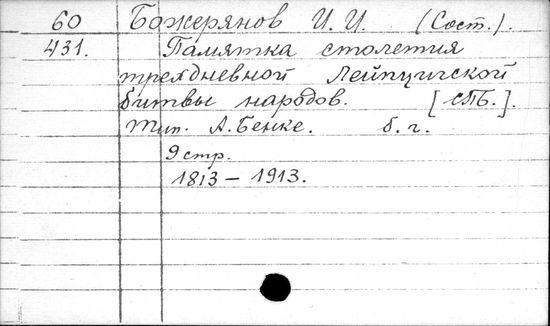 60 Божерянов И. И. (Сост.).
431. Памятка столетия
трехдневной Лейпцигской
битвы народов. [СПБ.].
Тип. А. Бенке. б. г.
9 стр.
1813 – 1913.